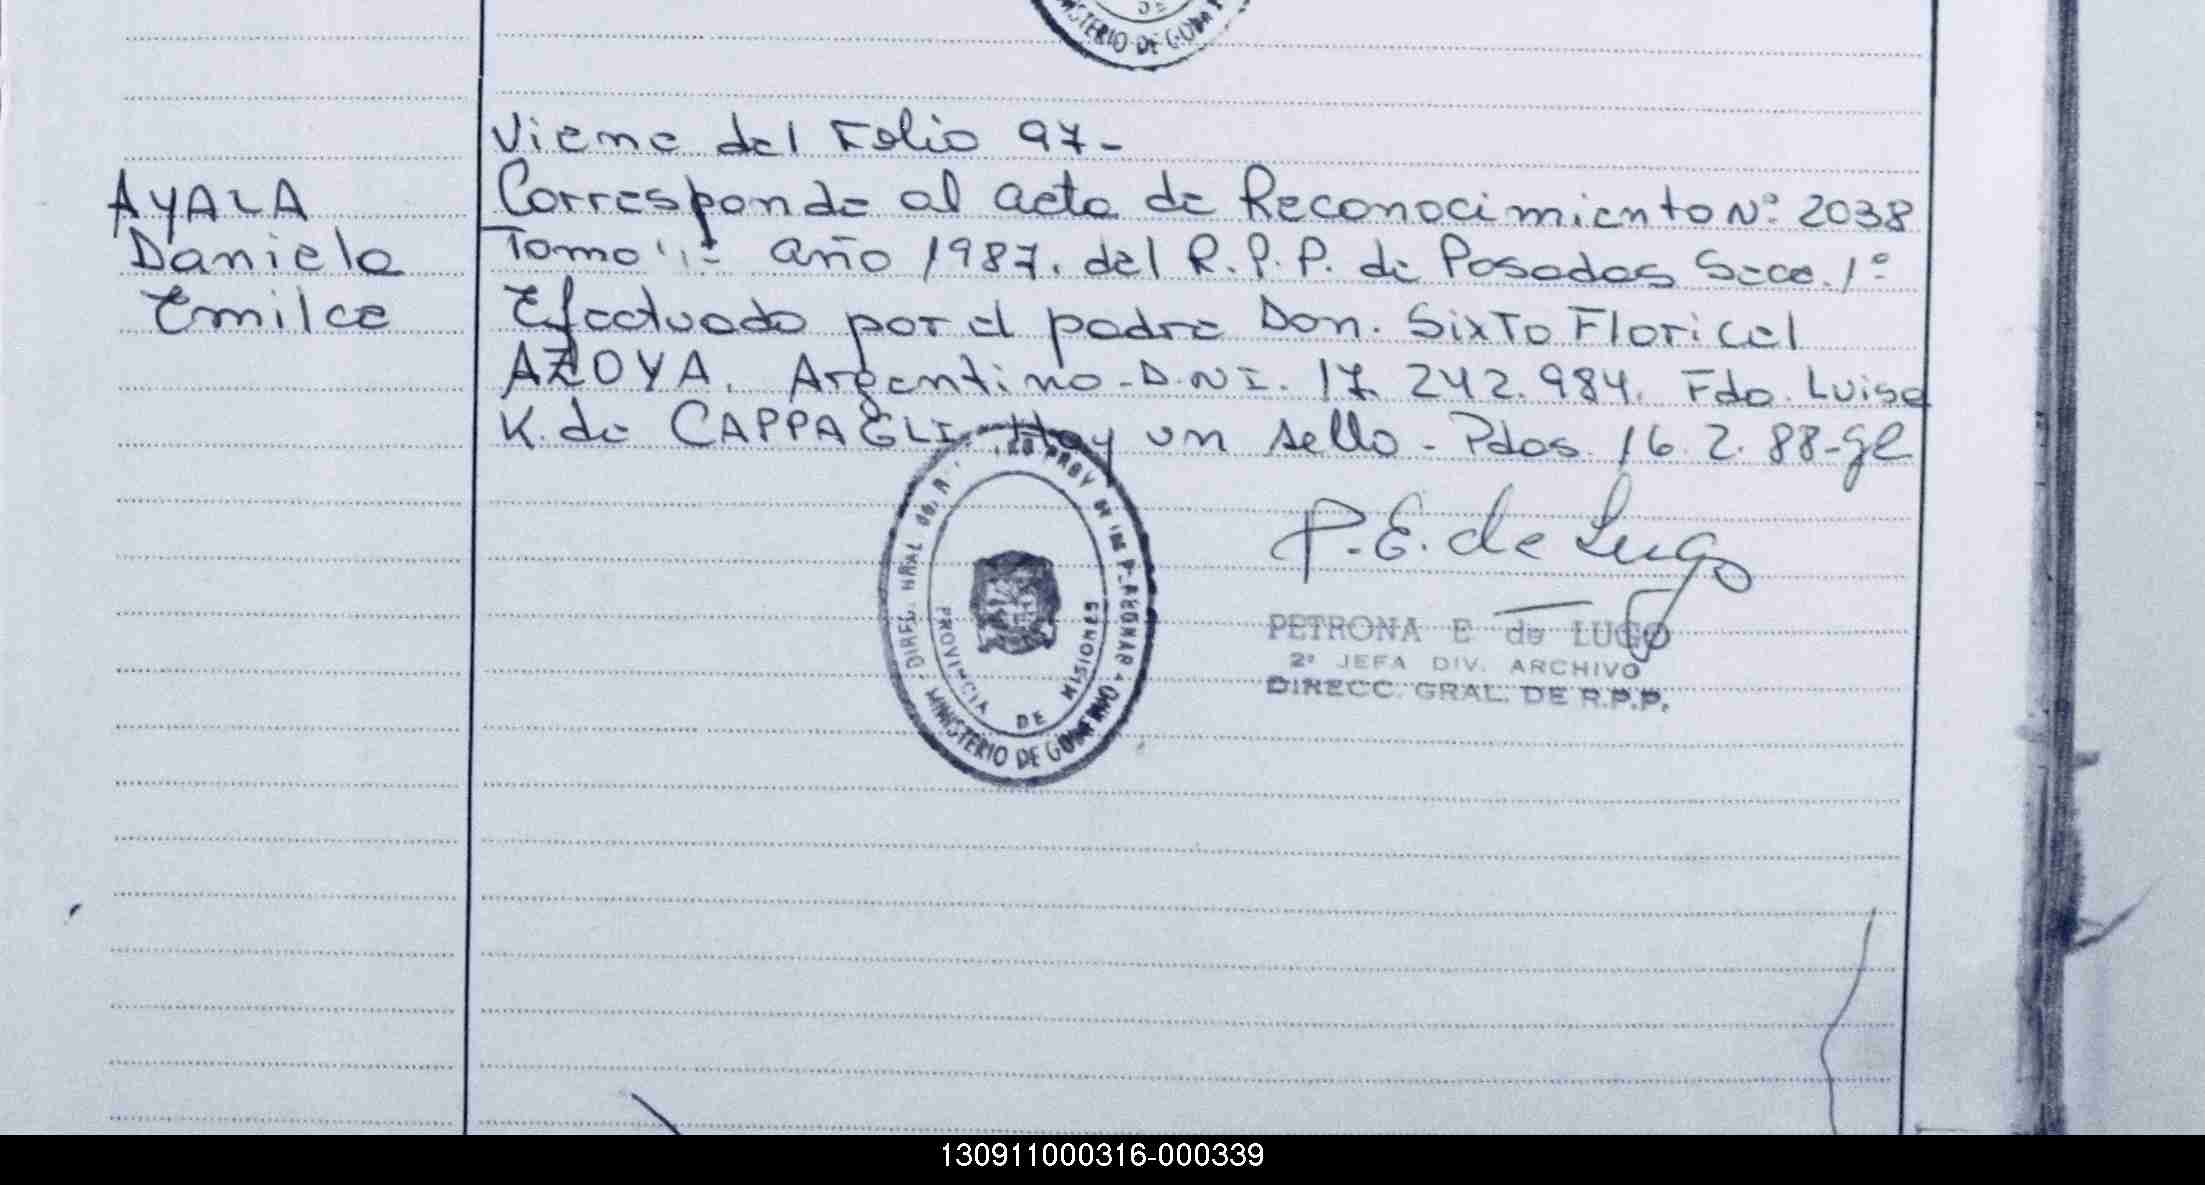 DE
MINISTERIO DE GOB
Viene del Folio 97-
AYALA
Daniela
Emilce
Corresponde al acta de Reconocimiento Nº 2038
Tomo año 1987. del R.P.P. de Posadas Secc. 1º
Efectuado por el padre Don. Sixto Floricel
AZOYA. Argentino. D.N.I. 17.242.984. Fdo. Luisa
K. de CAPPAGLI. Hay un sello - Pdas. 16.2.88-
P.E. de Lugo
PETRONA E de LUGO
2º JEFA DIV. ARCHIVO
DIRECC. GRAL. DE R.P.P.
PROVINCIA DE MISIONES
MINISTERIO DE GOBIERNO
130911000316-000339